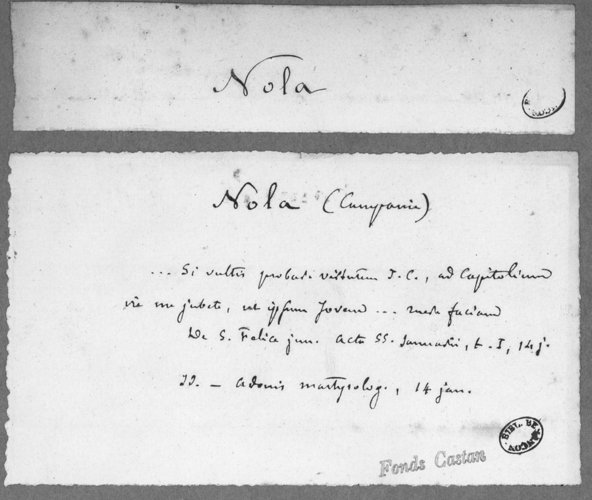 Nola
Nola (Campanie)
... Si vultis probari virtutem J. C., ad Capitolium
ire me jubete, ut ipsum Jovem ... faciam
De S. Felice jun. Acta SS. Januarii, t. I, 14 j.
II. — Adonis martyrolog., 14 jan.
BIBL. BESANÇON
Fonds Castan